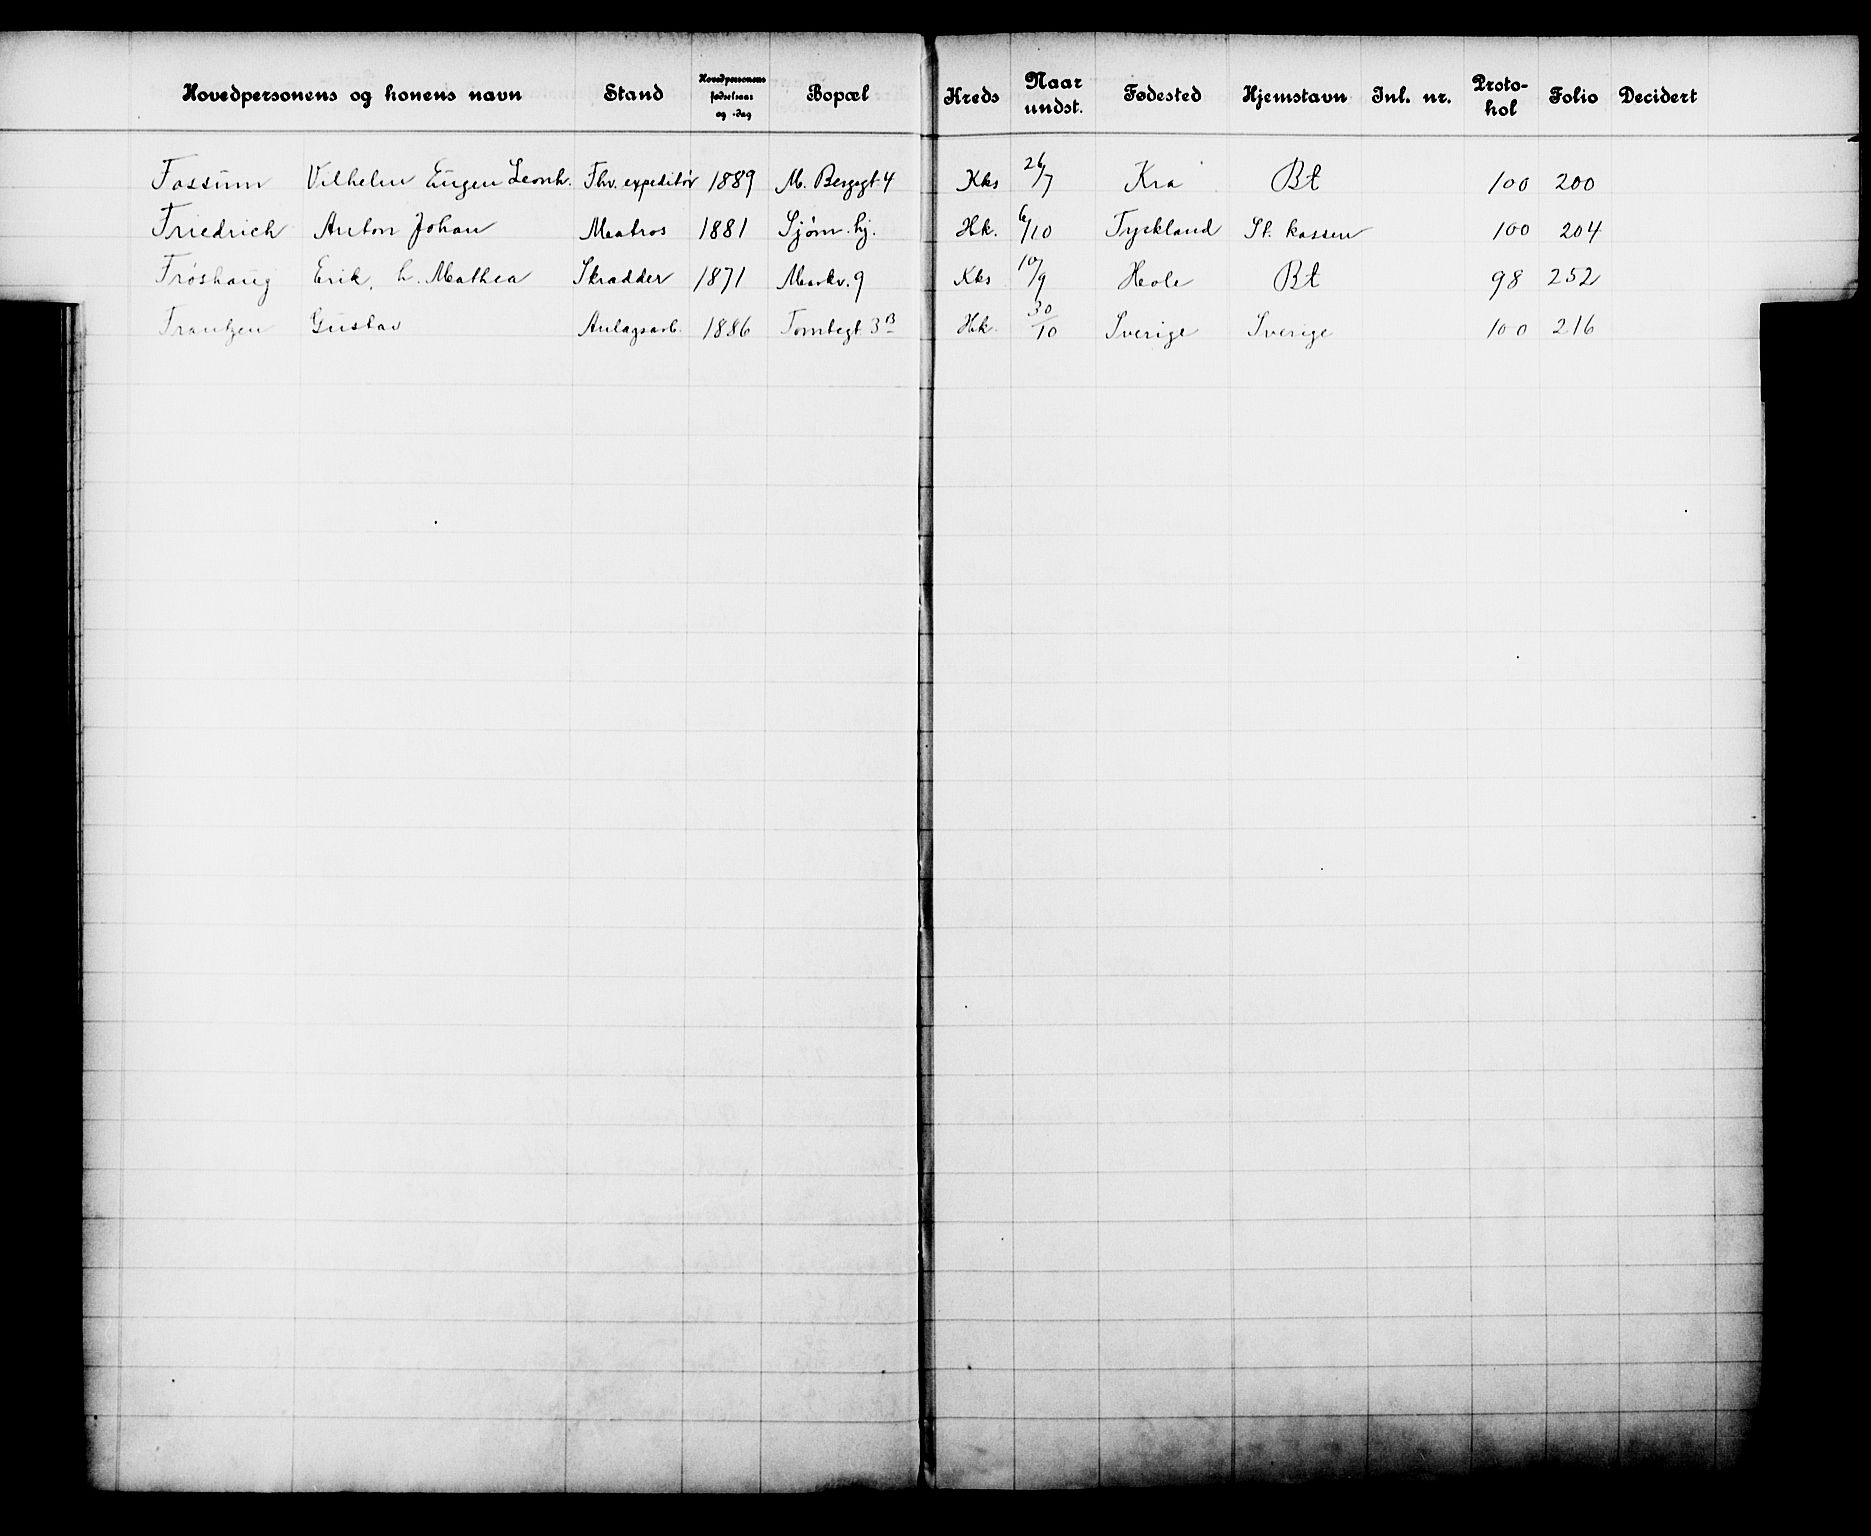 Hovedpersonens og konens navn Stand Hovedpersonens fødselsaar og -dag Bopæl Kreds Naar undst. Fødested Hjemstavn Inl. nr. Protokol Folio Decidert
Fossum Vilhelm Eugen Leonh. Fhv. expeditør 1889 M. Bergsgt. 4 Kks 26/7 Kra Bt 100 200
Friedrich Anton Johan Matros 1881 Sjøm. hj. Hk. 6/10 Tyskland St. kassen 100 204
Frøshaug Erik, h. Mathea Skrædder 1871 Markv. 9 Kks 10/9 Hole Bt 98 252
Frantzen Gustav Anlægsarb. 1886 Tomtegt 3B Hk. 30/10 Sverige Sverige 100 216